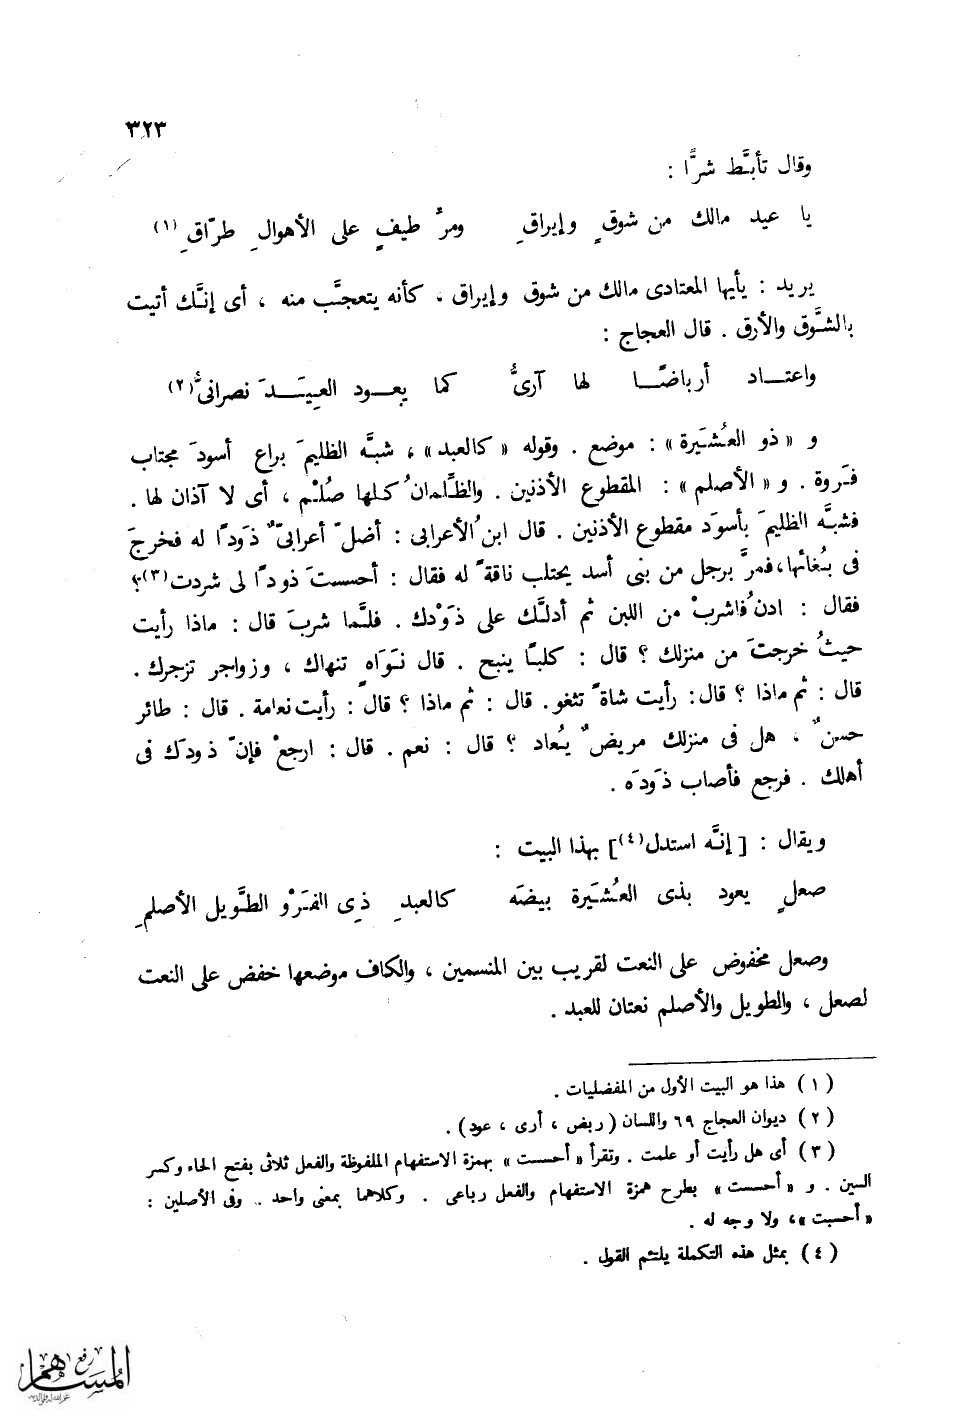 ٣٢٣
وقال تأبَّط شرًّا :
يا عيد مالك من شوقٍ وإيراقِ ومرِّ طيفٍ على الأهوالِ طرّاقِ (١)
يريد : يأيها المعتادى مالك من شوق وإيراق ، كأنه يتعجَّب منه ، أى إنَّك أتيت
بالشَّوق والأرق . قال العجاج :
واعتـاد أرباضًـا لها آرىُّ كما يعـود العِيـدَ نصرانىُّ (٢)
و « ذو العُشَيرة » : موضع . وقوله « كالعبد » ، شبَّه الظليمَ براع أسودَ مجتاب
فَروة . و « الأصلم » : المقطوع الأذنين . والظِّلمانُ كلها صُلْم ، أى لا آذان لها .
فشبَّه الظليمَ بأسوَد مقطوع الأذنين . قال ابنُ الأعرابى : أضلّ أعرابىٌّ ذَودًا له فخرجَ
فى بُغائها، فمرَّ برجل من بنى أسد يحتلب ناقةً له فقال : أحسستَ ذودًا لى شردت (٣)؟
فقال : ادنُ فاشربْ من اللبن ثم أدلَّك على ذَوْدك . فلَّما شربَ قال : ماذا رأيت
حيثُ خرجتَ من منزلك ؟ قال : كلبًا ينبح . قال نَوَاهٍ تنهاك ، وزواجر تزجرك .
قال : ثم ماذا ؟ قال: رأيت شاةً تثغو. قال : ثم ماذا ؟ قال : رأيت نعامة . قال : طائر
حسنٌ ، هل فى منزلك مريضٌ يُعاد ؟ قال : نعم . قال : ارجعْ فإنّ ذودَك فى
أهلك . فرجع فأصاب ذَودَه .
ويقال : [ إنَّه استدل (٤) ] بهذا البيت :
صعلٍ يعود بذى العُشَيرة بيضَه كالعبدِ ذِى الفَرْو الطَّويل الأصلمِ
وصعل مخفوض على النعت لقريب بين المنسمين ، والكاف موضعها خفض على النعت
لصعل ، والطويل والأصلم نعتان للعبد .
( ١ ) هذا هو البيت الأول من المفضليات .
( ٢ ) ديوان العجاج ٦٩ واللسان ( ربض ، أرى ، عود ) .
( ٣ ) أى هل رأيت أو علمت . وتقرأ « أحسست » بهمزة الاستفهام الملفوظة والفعل ثلاثى بفتح الحاء وكسر
السين . و « أحسست » بطرح همزة الاستفهام والفعل رباعى . وكلاهما بمعنى واحد .. وفى الأصلين :
« أحسبت »، ولا وجه له .
( ٤ ) بمثل هذه التكملة يلتئم القول .
رفع
المساهم